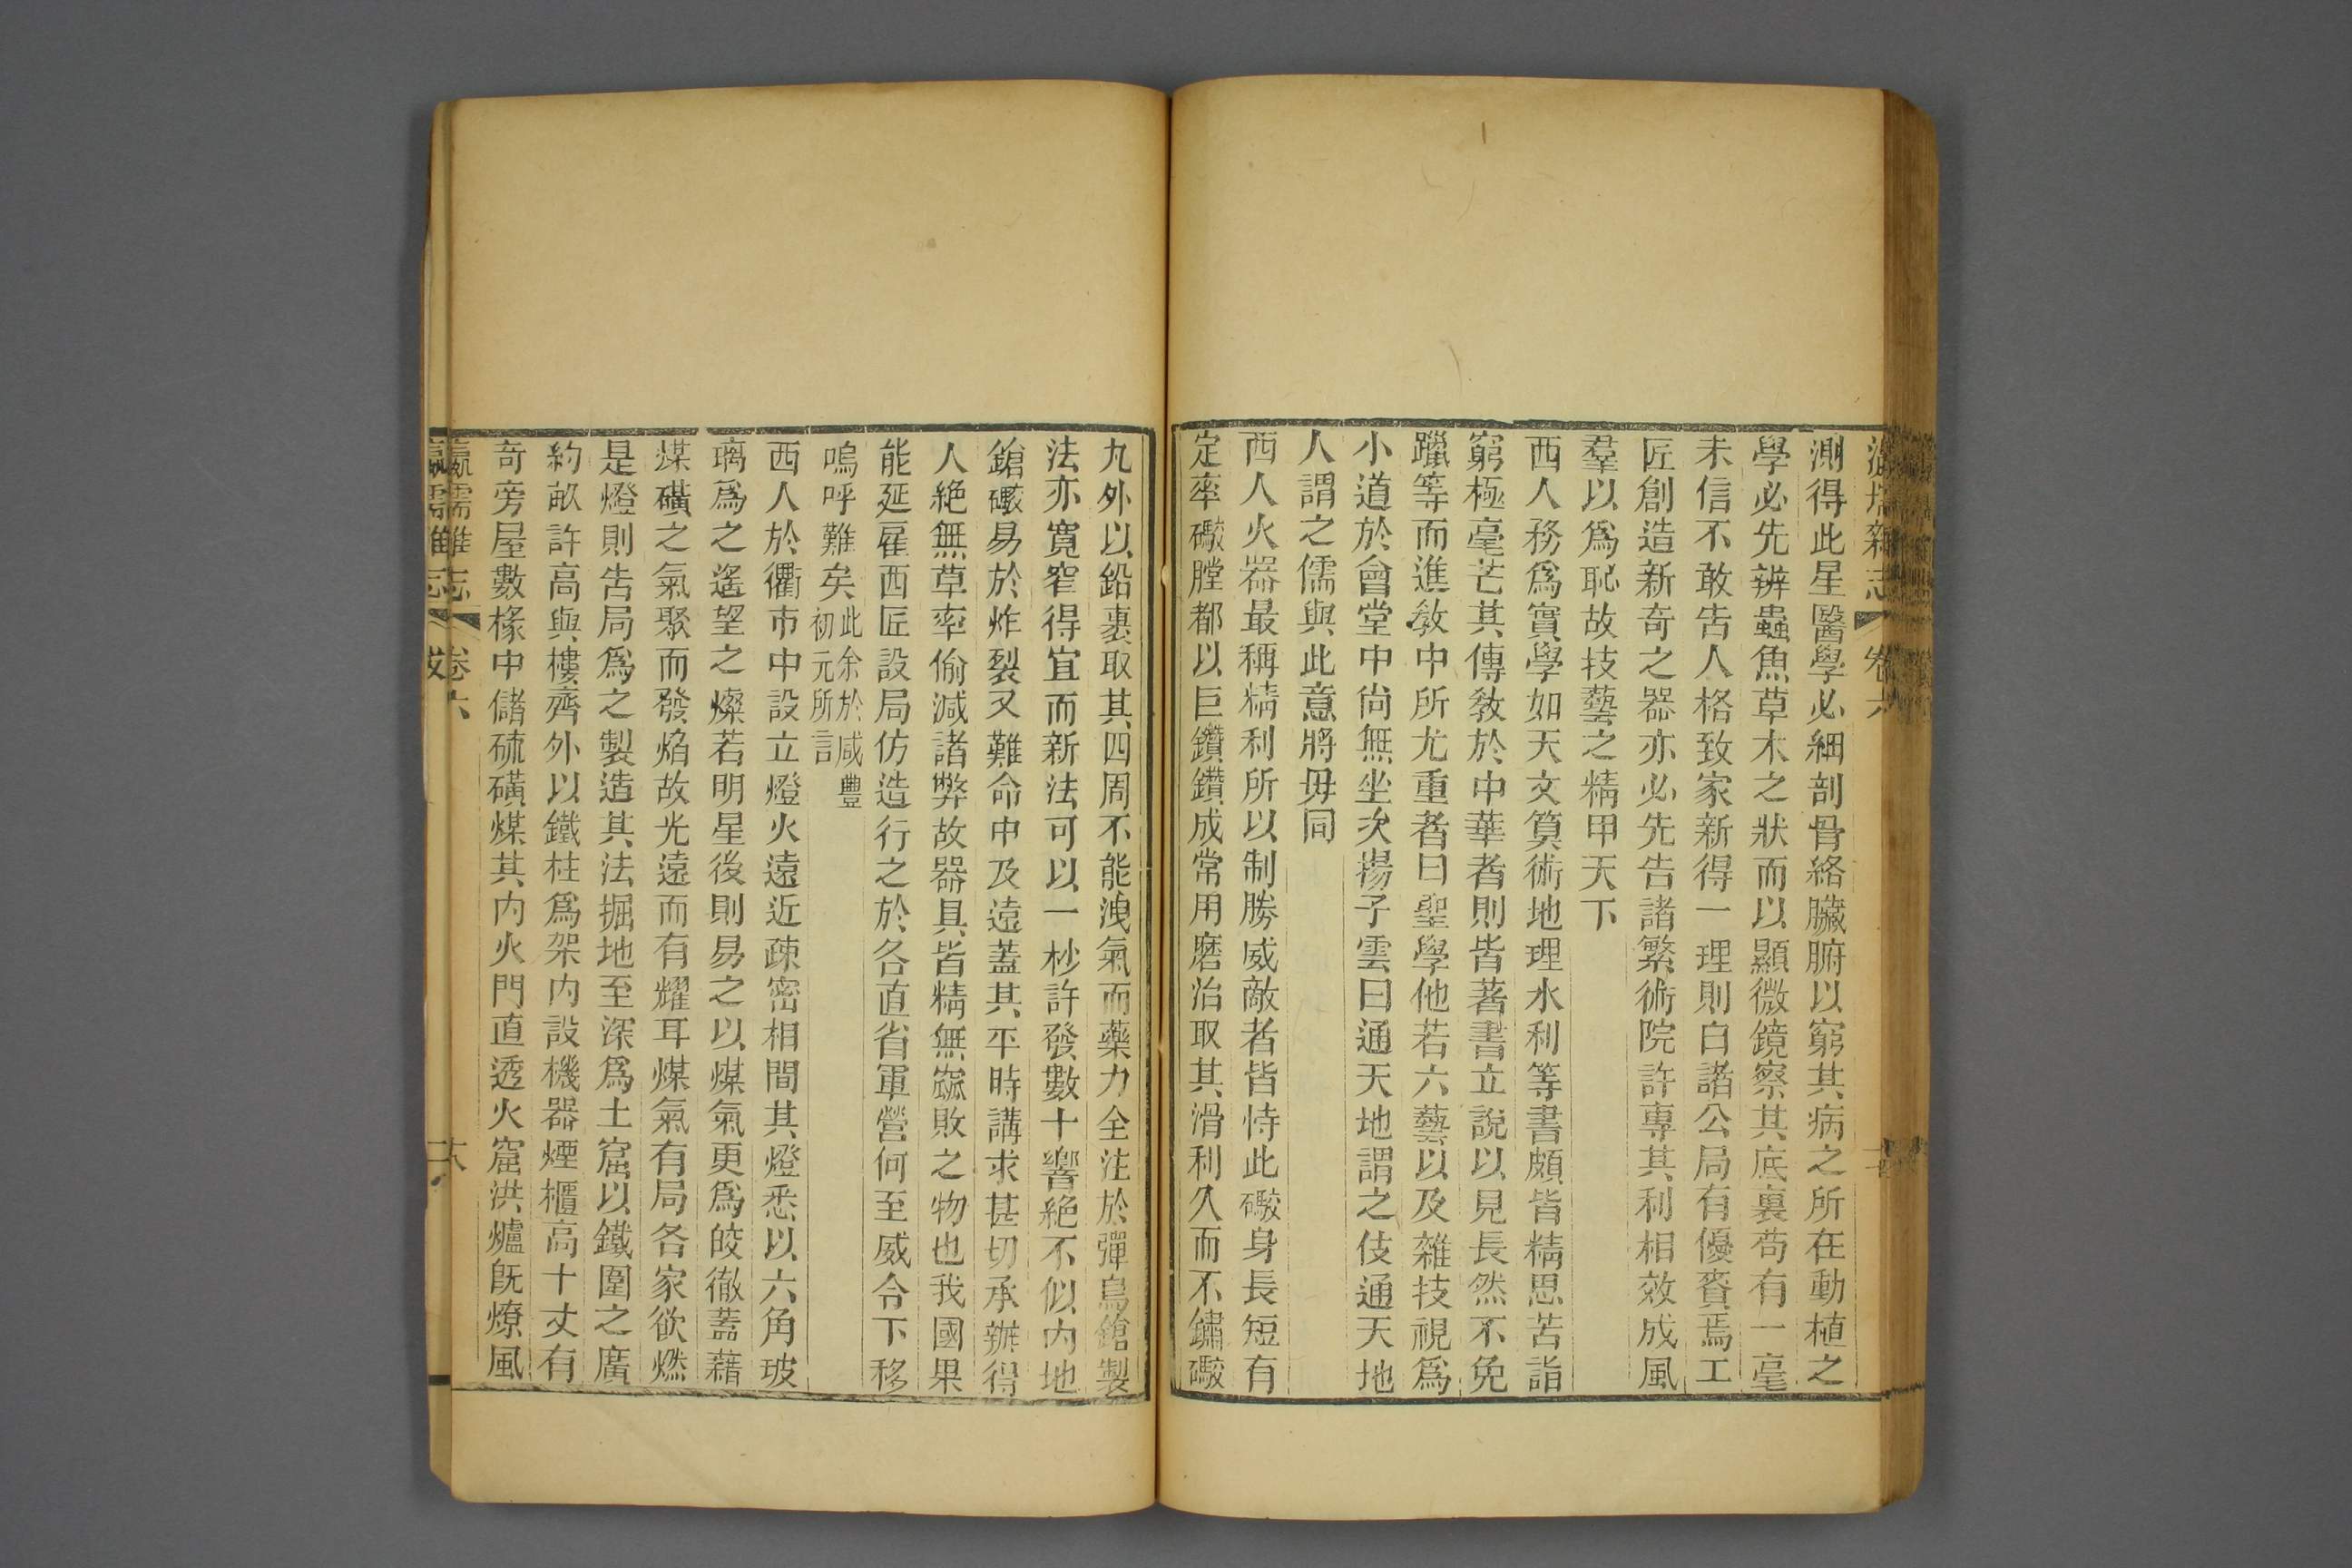 瀛壖雜志 卷六
測得此星醫學必細剖骨絡臟腑以窮其病之所在動植之
學必先辨蟲魚草木之狀而以顯微鏡察其底裏茍有一毫
未信不敢告人格致家新得一理則白諸公局有優賚焉工
匠創造新奇之器亦必先告諸繁術院許專其利相效成風
羣以爲恥故技藝之精甲天下
西人務爲實學如天文算術地理水利等書頗皆精思苦詣
窮極毫芒其傳敎於中華者則皆著書立說以見長然不免
躐等而進敎中所尤重者曰聖學他若六藝以及雜技視爲
小道於會堂中尙無坐次揚子雲曰通天地謂之伎通天地
人謂之儒與此意將毋同
西人火器最稱精利所以制勝威敵者皆恃此礮身長短有
定率礮膛都以巨鑽鑽成常用磨治取其滑利久而不鏽礮
九外以鉛裹取其四周不能洩氣而藥力全注於彈鳥鎗製
法亦寬窄得宜而新法可以一杪許發數十響絕不似內地
鎗礮易於炸裂又難命中及遠蓋其平時講求甚切承辦得
人絕無草率偷減諸弊故器具皆精無窳敗之物也我國果
能延雇西匠設局仿造行之於各直省軍營何至威令下移
嗚呼難矣此余於咸豐
初元所言
西人於衢市中設立燈火遠近疎密相間其燈悉以六角玻
璃爲之遙望之燦若明星後則易之以煤氣更爲皎徹蓋藉
煤磺之氣聚而發焰故光遠而有耀耳煤氣有局各家欲燃
是燈則告局爲之製造其法掘地至深爲土窟以鐵圍之廣
約畝許高與樓齊外以鐵柱爲架內設機器煙櫃高十丈有
奇旁屋數椽中儲硫磺煤其內火門直透火窟洪爐旣燎風
瀛壖雜志 卷六